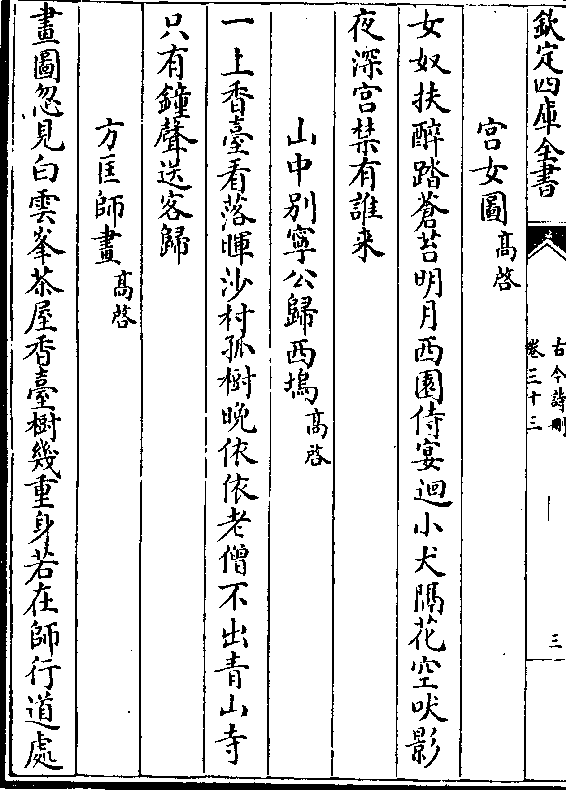 欽定四庫全書
古今詩刪
卷三十三
三
宫女圖 髙啓
女奴扶醉踏蒼苔明月西園侍宴迴小犬隔花空吠影
夜深宫禁有誰来
山中别寧公歸西塢 髙啓
一上香臺看落暉沙村孤樹晚依依老僧不出青山寺
只有鐘聲送客歸
方匡師畫 髙啓
畫圖忽見白雲峯茶屋香臺樹幾重身若在師行道處